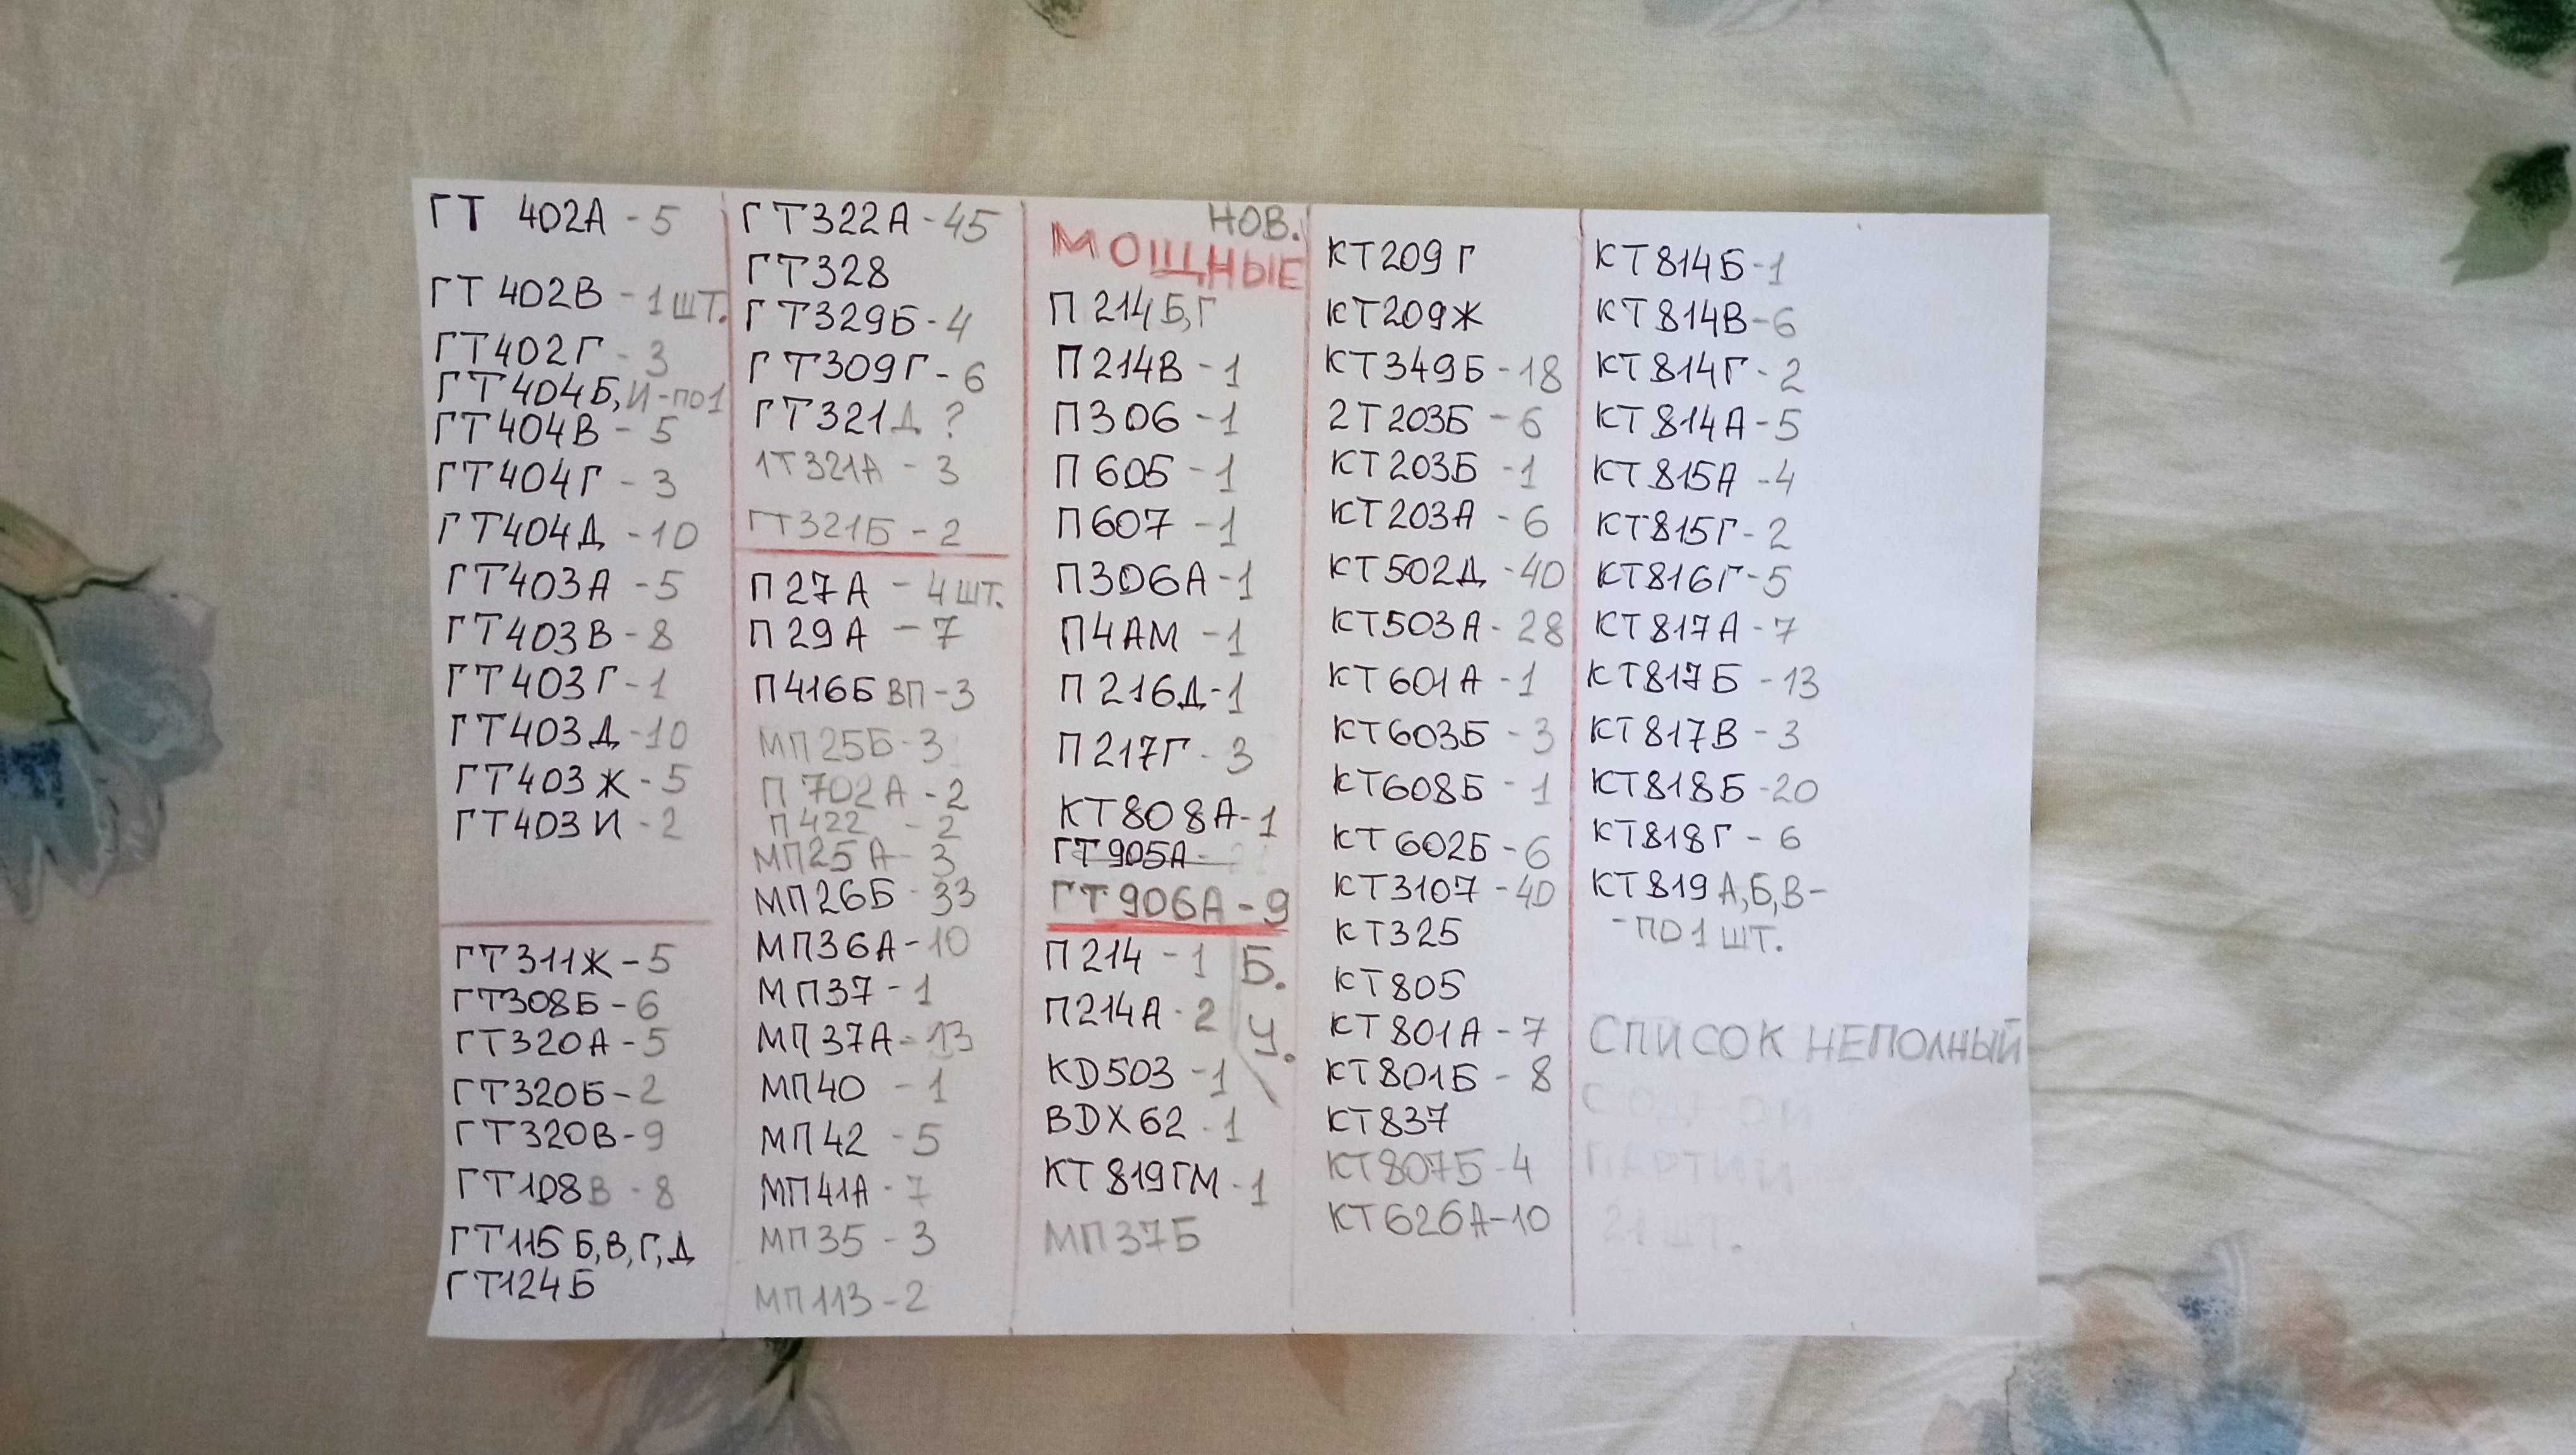 ГТ 402А - 5
ГТ 402В - 1 ШТ.
ГТ402Г - 3
ГТ404Б, И - ПО 1
ГТ404В - 5
ГТ404Г - 3
ГТ404Д - 10
ГТ403А - 5
ГТ403В - 8
ГТ403Г - 1
ГТ403Д - 10
ГТ403Ж - 5
ГТ403И - 2
ГТ311Ж - 5
ГТ308Б - 6
ГТ320А - 5
ГТ320Б - 2
ГТ320В - 9
ГТ108В - 8
ГТ115 Б, В, Г, Д
ГТ124Б
ГТ322А - 45
ГТ328
ГТ329Б - 4
ГТ309Г - 6
ГТ321Д ?
1Т321А - 3
ГТ321Б - 2
П27А - 4 ШТ.
П29А - 7
П416Б ВП - 3
МП25Б - 3
П702А - 2
П422 - 2
МП25А - 3
МП26Б - 33
МП36А - 10
МП37 - 1
МП37А - 13
МП40 - 1
МП42 - 5
МП41А - 7
МП35 - 3
МП113 - 2
НОВ.
МОЩНЫЕ
П214Б,Г
П214В - 1
П306 - 1
П605 - 1
П607 - 1
П306А - 1
П4АМ - 1
П216Д - 1
П217Г - 3
КТ808А - 1
ГТ905А -
ГТ906А - 9
П214 - 1
П214А - 2
Б.У.
KD503 - 1
BDX62 - 1
КТ819ГМ - 1
МП37Б
КТ209Г
КТ209Ж
КТ349Б - 18
2Т203Б - 6
КТ203Б - 1
КТ203А - 6
КТ502Д - 40
КТ503А - 28
КТ601А - 1
КТ603Б - 3
КТ608Б - 1
КТ602Б - 6
КТ3107 - 40
КТ325
КТ805
КТ801А - 7
КТ801Б - 8
КТ837
КТ807Б - 4
КТ626А - 10
КТ814Б - 1
КТ814В - 6
КТ814Г - 2
КТ814А - 5
КТ815А - 4
КТ815Г - 2
КТ816Г - 5
КТ817А - 7
КТ817Б - 13
КТ817В - 3
КТ818Б - 20
КТ818Г - 6
КТ819 А,Б,В -
- ПО 1 ШТ.
СПИСОК НЕПОЛНЫЙ
ПАРТИИ
21 ШТ.